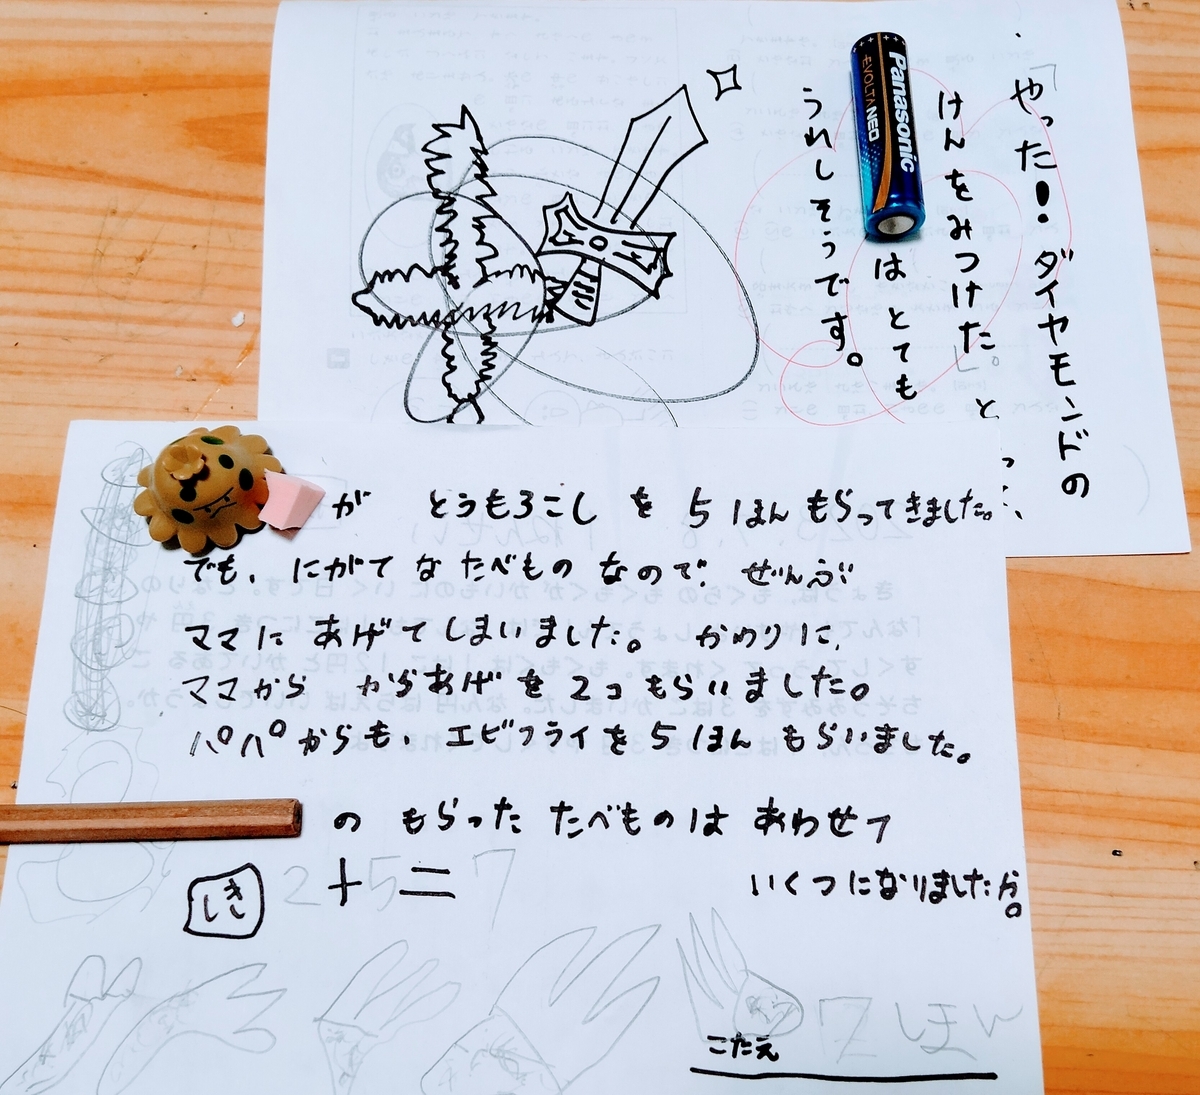 「やった！ダイヤモンドの
けんをみつけた。」と
はとても
うれしそうです。
Panasonic
EVOLTA NEO
が とうもろこし を 5ほん もらってきました。
でも、にがてな たべもの なので、ぜんぶ
ママに あげて しまいました。 かわりに、
ママから からあげを 2コ もらいました。
パパからも エビフライを 5ほん もらいました。
の もらった たべものは あわせて
いくつになりましたか。
しき 2+5=7
こたえ 7ほん